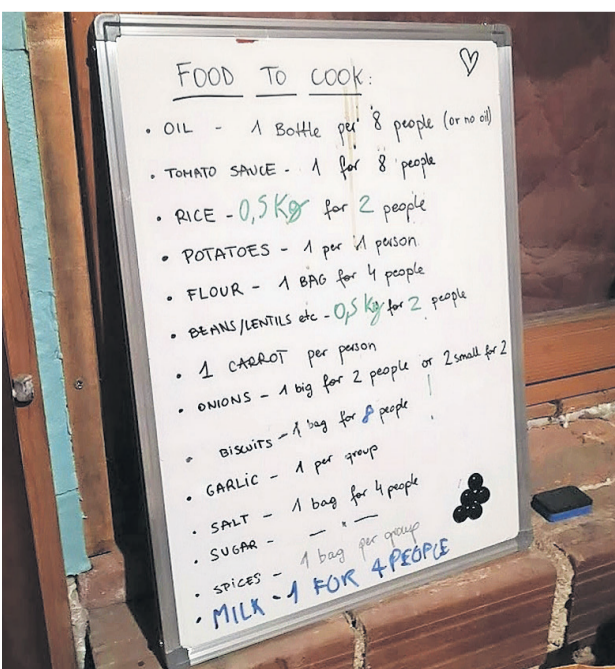 FOOD TO COOK:
• OIL - 1 Bottle per 8 people (or no oil)
• TOMATO SAUCE - 1 for 8 people
• RICE - 0,5 Kg for 2 people
• POTATOES - 1 per 1 person
• FLOUR - 1 BAG for 4 people
• BEANS/LENTILS etc - 0,5 Kg for 2 people
• 1 CARROT per person
• ONIONS - 1 big for 2 people or 2 small for 2
• BISCUITS - 1 bag for 8 people
• GARLIC - 1 per group
• SALT - 1 bag for 4 people
• SUGAR - — " —
• SPICES - 1 bag per group
• MILK - 1 FOR 4 PEOPLE